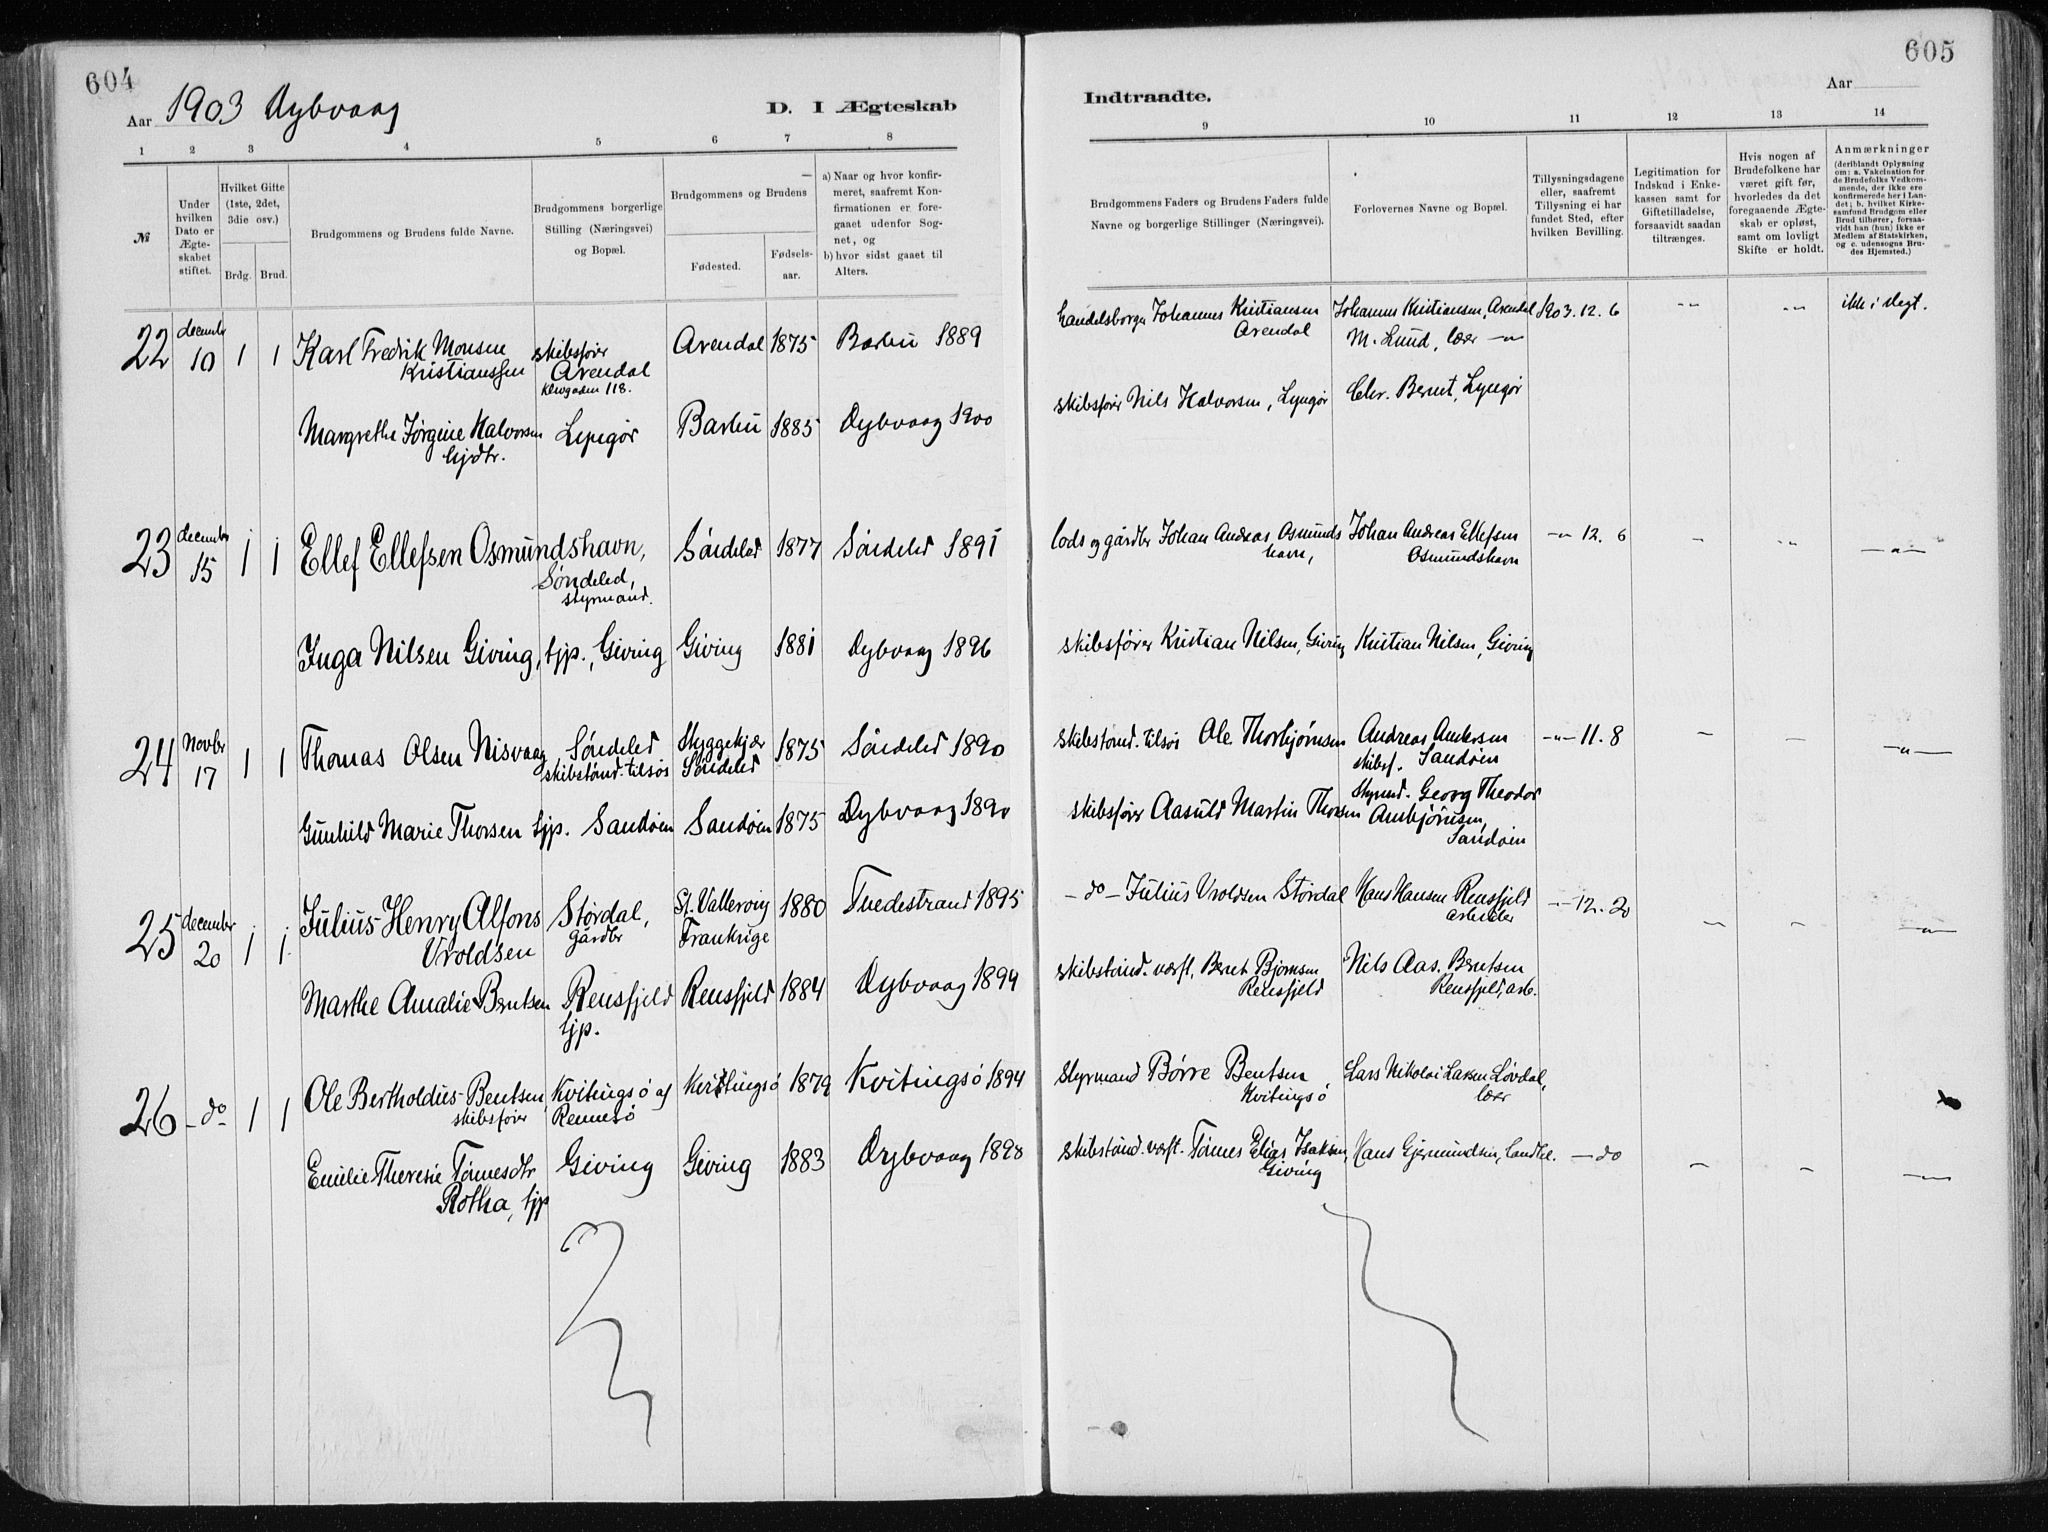 604
Aar 1903 Dybvaag
D. I Ægteskab
1 2 3 4 5 6 7 8
№
Under hvilken Dato er Ægteskabet stiftet.
Hvilket Gifte (1ste, 2det, 3die osv.)
Brdg. Brud.
Brudgommens og Brudens fulde Navne.
Brudgommens borgerlige Stilling (Næringsvei) og Bopæl.
Brudgommens og Brudens
Fødested.
Fødselsaar.
a) Naar og hvor konfirmeret, saafremt Konfirmationen er foregaaet udenfor Sognet, og
b) hvor sidst gaaet til Alters.
22 december 10 1 1 Karl Fredrik Monsen Kristianssen skibsfører Arendal 118. Arendal 1875 Barbu 1889
Margrethe Jørgine Halvorsen hjdtr. Lyngør Barbu 1885 Dybvaag 1900
23 december 15 1 1 Ellef Ellefsen Osmundshavn, Søndeled, styrmand. Søndeled 1877 Søndeled 1891
Inga Nilsen Giving, tjp., Giving Giving 1881 Dybvaag 1896
24 Novbr 17 1 1 Thomas Olsen Nisvaag Søndeled skibstømd. tilsøs Skyggekjær Søndeled 1875 Søndeled 1890
Gunhild Marie Thorsen tjp. Sandøen Sandøen 1875 Dybvaag 1890
25 december 20 1 1 Julius Henry Alfons Vroldsen Størdal, gårdbr St. Valleroing Frankrige 1880 Tvedestrand 1895
Marthe Amalie Berntsen Rensfjeld tjp. Rensfjeld 1884 Dybvaag 1894
26 - do - 1 1 Ole Bertholdus Bentsen skibsfører Kvitingsø af Rennesø Kvitingsø 1879 Kvitingsø 1894
Emilie Therese Tømesdtr Rotha, tjp Giving Giving 1883 Dybvaag 1898
605
Indtraadte.
Aar
9 10 11 12 13 14
Brudgommens Faders og Brudens Faders fulde Navne og borgerlige Stillinger (Næringsvei).
Forlovernes Navne og Bopæl.
Tillysningsdagene eller, saafremt Tillysning ei har fundet Sted, efter hvilken Bevilling.
Legitimation for Indskud i Enkekassen samt for Giftetilladelse, forsaavidt saadan tiltrænges.
Hvis nogen af Brudefolkene har været gift før, hvorledes da det foregaaende Ægteskab er opløst, samt om lovligt Skifte er holdt.
Anmærkninger (deriblandt Oplysning om: a. Vakcination for de Brudefolks Vedkommende, der ikke ere konfirmerede her i Landet; b. hvilket Kirkesamfund Brudgom eller Brud tilhører, forsaavidt han (hun) ikke er Medlem af Statskirken, og c. udensogns Brudes Hjemsted.)
handelsborger Johannes Kristiansen Arendal Johannes Kristiansen, Arendal 1903. 12. 6 -"- -"- ikke i slegt.
M. Lund, lærer -"-
skibsfører Nils Halvorsen, Lyngør Chr. Bernt, Lyngør
lods og gårdbr Johan Andreas Osmundshavn, Johan Andreas Ellefsen Osmundshavn -"- 12. 6 - -"- -"-
skibsfører Kristian Nilsen, Giving Kristian Nilsen, Giving
skibstømd. tilsøs Ole Thorbjørnsen Andreas Andersen skibsf. Sandøen -"- 11. 8 - - -"-
skibsfører Aasuld Martin Thorsen Styrmd. Georg Theodor Ambjørnsen, Sandøen
- do - Julius Vroldsen Størdal Hans Hansen Rensfjeld arbeider -"- 12. 20 - - -"-
skibstømd. værft, Bernt Bjørnsen Rensfjeld Nils Aas. Berntsen Rensfjeld, arb.
Styrmand Børre Bentsen Kvitingsø Lars Nikolai Larsen Løvdal, lærer
skibstømd. værft. Tømes Elias Isaksen, Giving Hans Gjermundsen, landhl. - do - - -"-